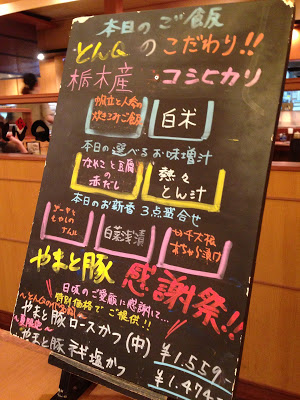 本日のご飯
とんQのこだわり!!
栃木産 コシヒカリ
帆立と人参の
炊きこみご飯
白米
本日の選べるお味噌汁
なめこと豆腐
の
赤だし
熱々
とん汁
本日のお新香 3点盛合せ
もやしの
ナムル
白菜浅漬
わさび漬け
やまと豚 感謝祭!!
日頃のご愛顧に感謝して...
特別価格でご提供!!
やまと豚ロースかつ(中) ¥1,559-
やまと豚 特塩かつ ¥1,474-